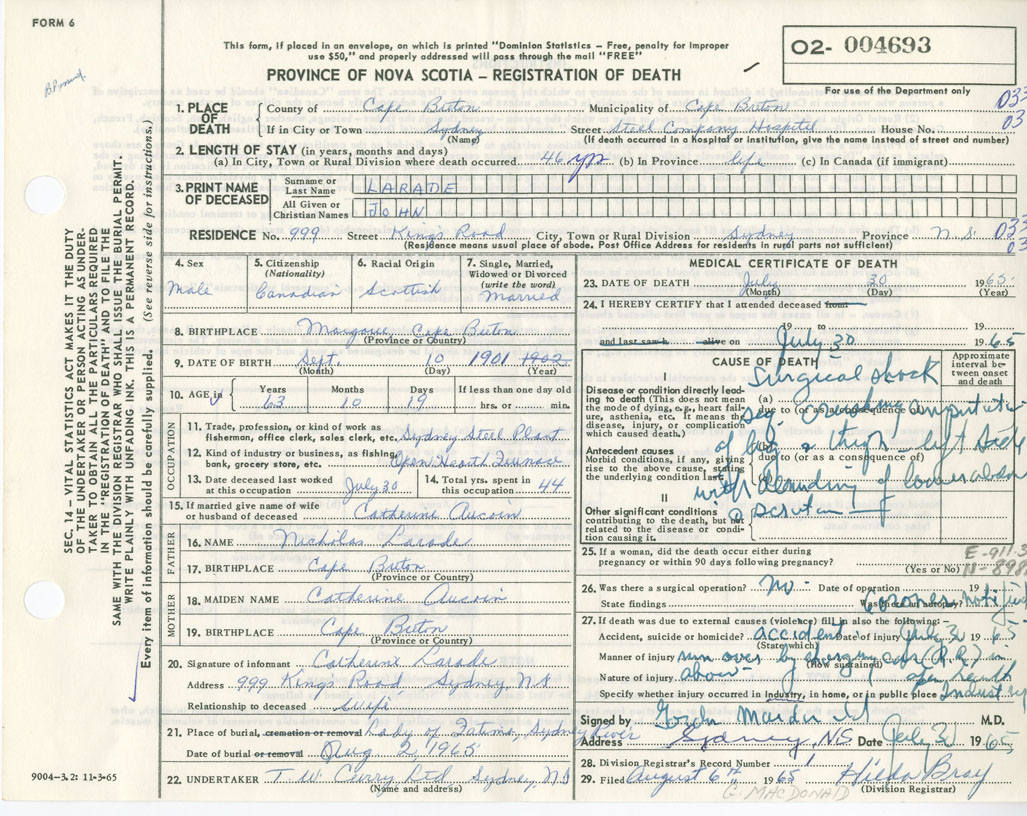 FORM 6
This form, if placed in an envelope, on which is printed "Dominion Statistics – Free, penalty for improper
use $50," and properly addressed will pass through the mail "FREE"
PROVINCE OF NOVA SCOTIA – REGISTRATION OF DEATH
O2- 004693
For use of the Department only
SEC. 14 –VITAL STATISTICS ACT MAKES IT THE DUTY
OF THE UNDERTAKER OR PERSON ACTING AS UNDER-
TAKER TO OBTAIN ALL THE PARTICULARS REQUIRED
IN THE "REGISTRATION OF DEATH" AND TO FILE THE
SAME WITH THE DIVISION REGISTRAR WHO SHALL ISSUE THE BURIAL PERMIT.
WRITE PLAINLY WITH UNFADING INK. THIS IS A PERMANENT RECORD.
Every item of information should be carefully supplied. (See reverse side for instructions.)
1. PLACE OF DEATH County of Cape Breton Municipality of Cape Breton 033
If in City or Town Sydney Street Steel Company Hospital House No. 03
(Name) (If death occurred in a Hospital or institution, give the name instead of street and number)
2. LENGTH OF STAY (in years, months and days)
(a) In City, Town or Rural Division where death occurred 46 yrs (b) In Province life (c) In Canada (if immigrant)
3. PRINT NAME OF DECEASED Surname or Last Name LARADE
All Given or Christian Names JOHN
RESIDENCE No. 999 Street King's Road City, Town or Rural Division Sydney Province N.S. 033
(Residence means usual place of abode. Post Office Address for residents in rural parts not sufficient) 03
4. Sex Male
5. Citizenship (Nationality) Canadian
6. Racial Origin Scottish
7. Single, Married, Widowed or Divorced (write the word) Married
8. BIRTHPLACE Margaree Cape Breton
(Province or Country)
9. DATE OF BIRTH Sept. 10 1901 1902
(Month) (Day) (Year)
10. AGE in Years 63 Months 10 Days 19 If less than one day old hrs. or min.
OCCUPATION
11. Trade, profession, or kind of work as
fisherman, office clerk, sales clerk, etc. Sydney Steel Plant
12. Kind of industry or business, as fishing,
bank, grocery store, etc. Open Hearth Furnace
13. Date deceased last worked at this occupation July 30
14. Total yrs. spent in this occupation 44
15. If married give name of wife
or husband of deceased Catherine Aucoin
FATHER
16. NAME Nicholas Larade
17. BIRTHPLACE Cape Breton
(Province or Country)
MOTHER
18. MAIDEN NAME Catherine Aucoin
19. BIRTHPLACE Cape Breton
(Province or Country)
20. Signature of informant Catherine Larade
Address 999 King's Road, Sydney, NS
Relationship to deceased wife
21. Place of burial, cremation or removal Lady of Fatima, Sydney River
Date of burial or removal Aug 2, 1965
22. UNDERTAKER T. W. Curry Ltd Sydney, NS
(Name and address)
9004–3.2: 11-3-65
MEDICAL CERTIFICATE OF DEATH
23. DATE OF DEATH July 30 1965
(Month) (Day) (Year)
24. I HEREBY CERTIFY that I attended deceased from
19 to 19
and last saw h alive on July 30 1965
CAUSE OF DEATH
Approximate interval between onset and death
I
Disease or condition directly leading to death (This does not mean the mode of dying, e.g., heart failure, asthenia, etc. It means the disease, injury, or complication which caused death.)
(a) Surgical shock
due to (or as a consequence of)
amputation
Antecedent causes
Morbid conditions, if any, giving rise to the above cause, stating the underlying condition last.
(b) of leg & thigh left side
due to (or as a consequence of)
with
II
Other significant conditions
contributing to the death, but not related to the disease or condition causing it.
25. If a woman, did the death occur either during
pregnancy or within 90 days following pregnancy? (Yes or No)
E-911.3
N-898
26. Was there a surgical operation? No Date of operation 19
State findings Was there an autopsy? Coroner notified
27. If death was due to external causes (violence) fill in also the following:–
Accident, suicide or homicide? accident Date of injury July 30 1965
(State which)
Manner of injury run over by charging cars (R.R.) in
(How sustained)
Nature of injury above open hearth
Specify whether injury occurred in industry, in home, or in public place Industry
Signed by M.D.
Address Sydney, N.S. Date July 30 1965
28. Division Registrar's Record Number 1
29. Filed August 6th 1965 Hilda Bray
(Division Registrar)
G. MACDONALD